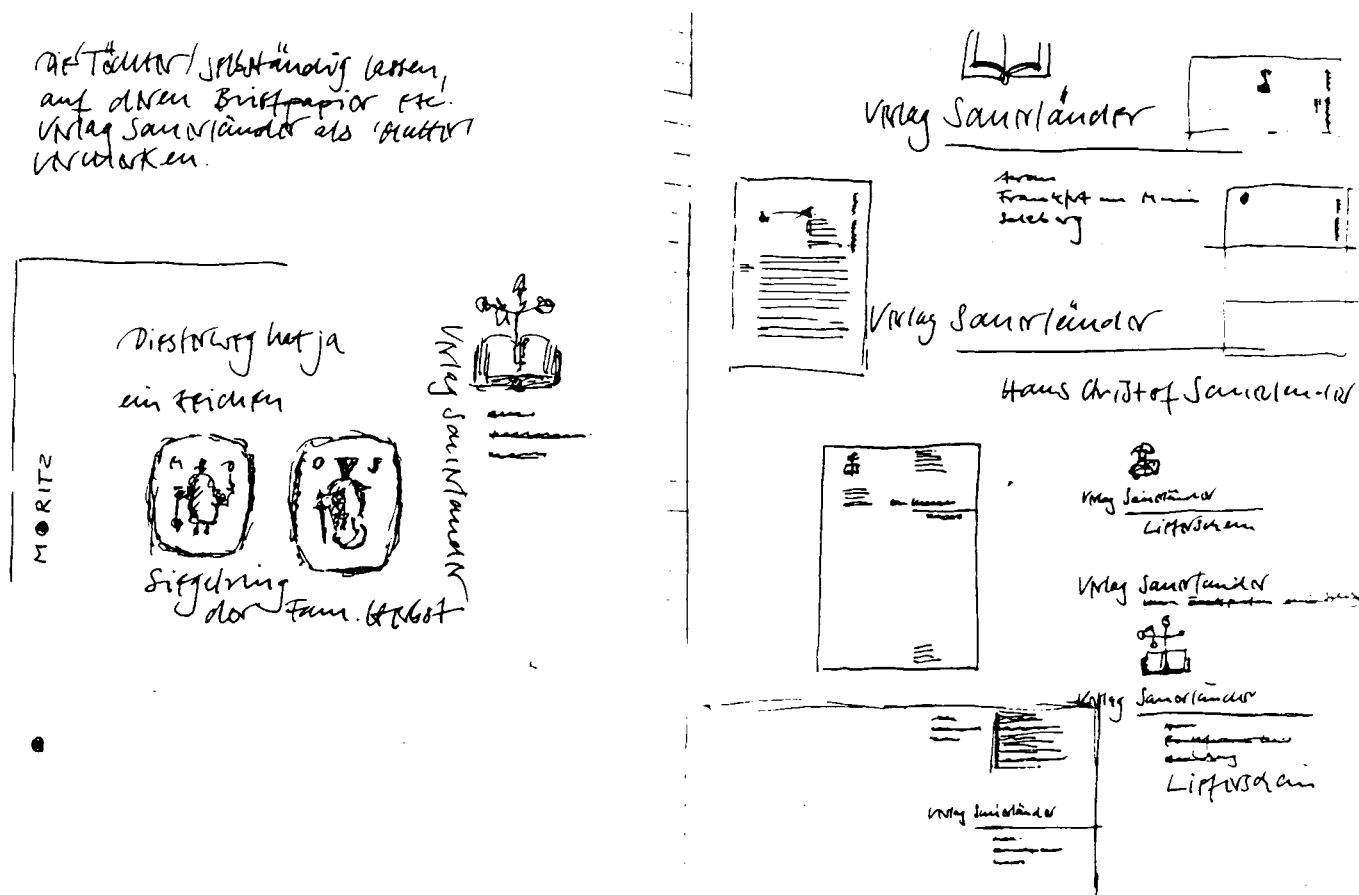 Die 'Töchter' selbständig lassen,
auf deren Briefpapier etc.
Verlag Sauerländer als 'Mutter'
vermerken.
Diesterweg hat ja
ein Zeichen
MORITZ
M D
D S
Siegelring
der Fam. Herbst
Verlag Sauerländer
Verlag Sauerländer
Aarau
Frankfurt am Main
Salzburg
Verlag Sauerländer
Hans Christof Sauerländer
Verlag Sauerländer
Lieferschein
Verlag Sauerländer
Verlag Sauerländer
Lieferschein
Verlag Sauerländer